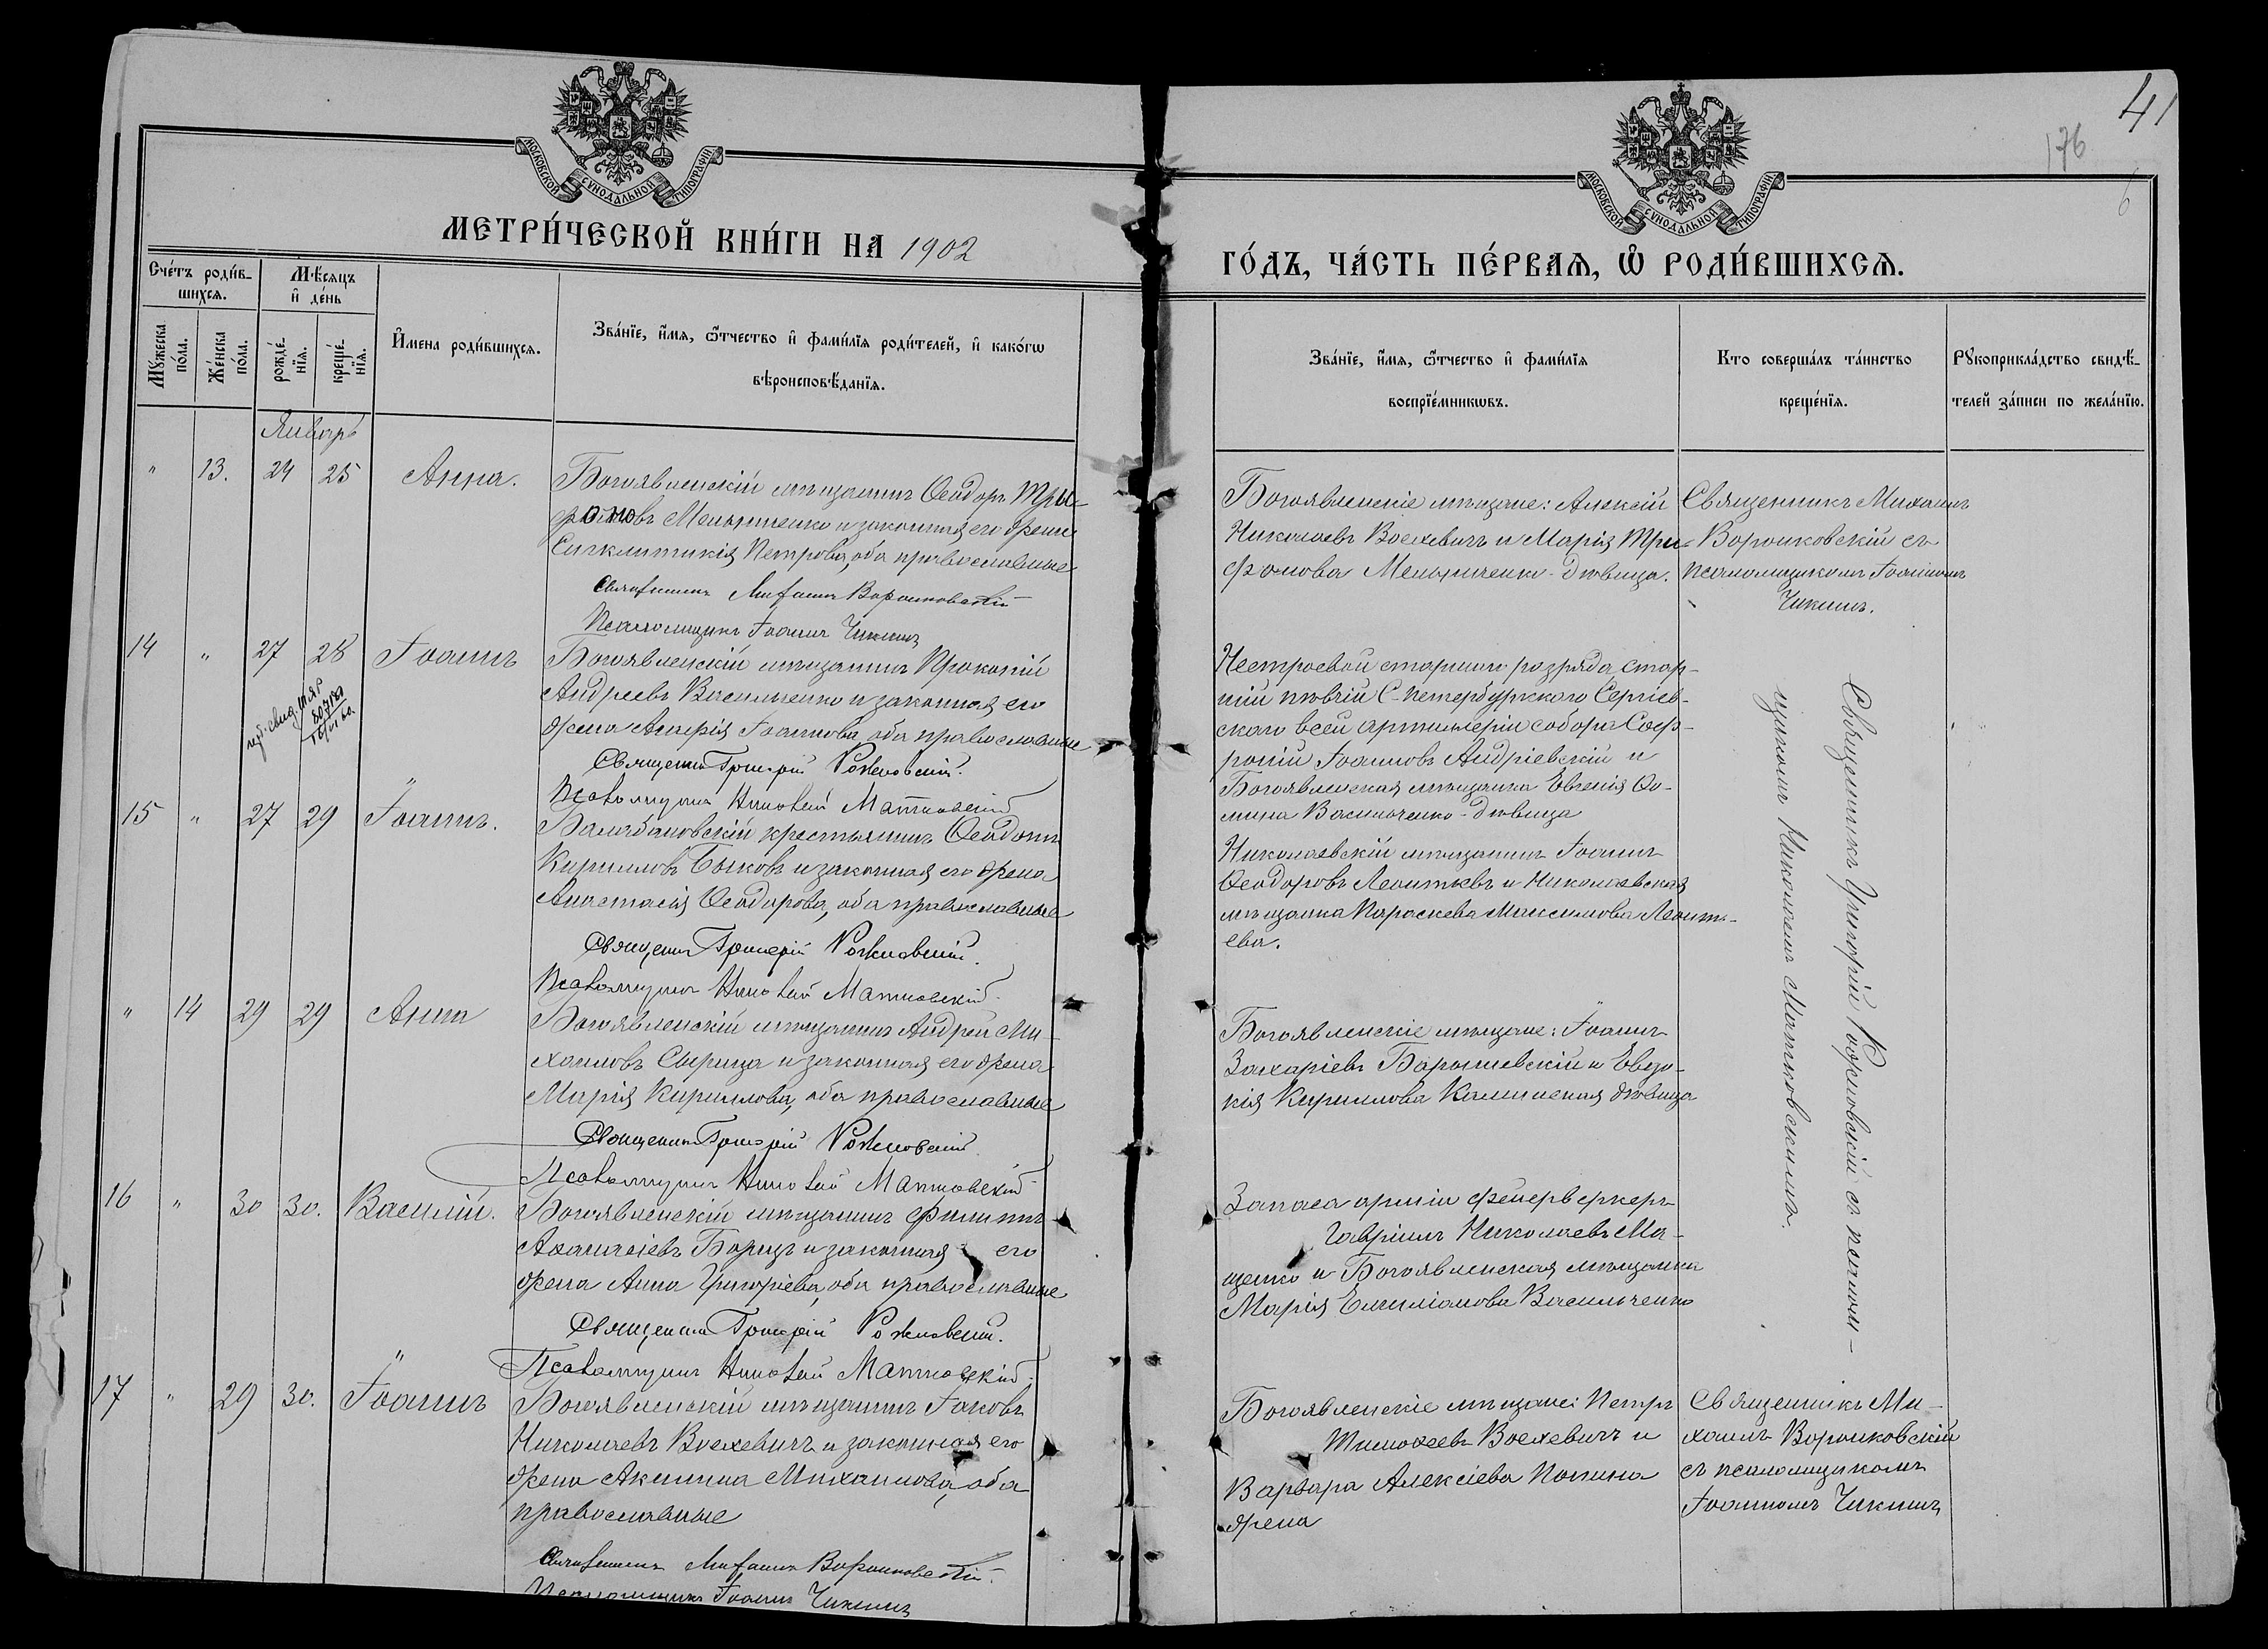 41
176
6
МОСКОВСКОЙ СѴНОДАЛЬНОЙ ТИПОГРАФІИ
МОСКОВСКОЙ СѴНОДАЛЬНОЙ ТИПОГРАФІИ
МЕТРИ́ЧЕСКОЙ КНИ́ГИ НА 1902
ГО́ДЪ, ЧА́СТЬ ПЕ́РВАѦ, Ѡ РОДИ́ВШИХСѦ.
Сче́тъ роди́в-
шихсѧ.
Мѣ́сѧцъ
и҆ де́нь
Мꙋ́жеска
по́ла.
Же́нска
по́ла.
рожде́-
нїѧ.
креще́-
нїѧ.
И҆мена роди́вшихсѧ.
Зва́нїе, и҆́мѧ, ѻ҆́тчество и҆ фами́лїѧ роди́телей, и҆ како́гѡ
вѣроисповѣ́данїѧ.
Зва́нїе, и҆́мѧ, ѻ҆́тчество и҆ фами́лїѧ
воспрїе́мникѡвъ.
Кто соверша́лъ та́инство
креще́нїѧ.
Рꙋкоприкла́дство свидѣ́-
телей за́писи по жела́нїю.
Январь
" 13. 24 25 Анна.
Богоявленскій мѣщанинъ Ѳеодоръ Три-
фоновъ Мельниченко и законная его жена
Сигклитикія Петрова, оба православные
Священникъ Михаилъ Воронковскій
Псаломщикъ Іоаннъ Чикинъ
Богоявленскіе мѣщане: Алексій
Николаевъ Воехевичъ и Марія Три-
фонова Мельниченко - дѣвица.
Священникъ Михаилъ
Воронковскій съ
псаломщикомъ Іоанномъ
Чикинъ.
14 " 27 28 Іоаннъ
Богоявленскій мѣщанинъ Прокопій
Андреевъ Васильченко и законная его
жена Агафія Іоаннова, оба православные
Священникъ Григорій Рожновскій.
Псаломщикъ Николай Матковскій
807181
16/VI 60.
Нестроевой старшаго разряда, стар-
шій пѣвчій С-Петербургскаго Сергіев-
скаго всей артиллеріи собора Соф-
роній Іоанновъ Андріевскій и
Богоявленская мѣщанка Евгенія Ѳо-
мина Васильченко - дѣвица
Священникъ Григорій Рожновскій съ псалом-
щикомъ Николаемъ Матковскимъ.
15 " 27 29 Іоаннъ.
Балабановскій крестьянинъ Ѳеодотъ
Кирилловъ Быковъ и законная его жена
Анастасія Ѳеодорова, оба православные
Священникъ Григорій Рожновскій.
Псаломщикъ Николай Матковскій.
Николаевскій мѣщанинъ Іоаннъ
Ѳеодоровъ Леонтьевъ и Николаевская
мѣщанка Параскева Максимова Леонть-
ева.
" 14 29 29 Анна
Богоявленскій мѣщанинъ Андрей Ми-
хаиловъ Сырица и законная его жена
Марія Кириллова, оба православные
Священникъ Григорій Рожновскій.
Псаломщикъ Николай Матковскій
Богоявленскіе мѣщане: Іоаннъ
Захаріевъ Барышевскій и Евдо-
кія Кириллова Калинская дѣвица
16 " 30 30. Василій.
Богоявленскій мѣщанинъ Филиппъ
Аѳанасіевъ Борищъ и законная его
жена Анна Григоріева, оба православные
Священникъ Григорій Рожновскій.
Псаломщикъ Николай Матковскій.
Запаса арміи фейерверкеръ
Гавріилъ Николаевъ Ма-
щенко и Богоявленская мѣщанка
Марія Емиліанова Васильченко
17 " 29 30. Іоаннъ
Богоявленскій мѣщанинъ Іаковъ
Николаевъ Воехевичъ и законная его
жена Акилина Михаилова, оба
православные
Священникъ Михаилъ Воронковскій.
Псаломщикъ Іоаннъ Чикинъ
Богоявленскіе мѣщане: Петръ
Тимоѳеевъ Воехевичъ и
Варвара Алексіева Попина
жена
Священникъ Ми-
хаилъ Воронковскій
съ псаломщикомъ
Іоанномъ Чикинъ